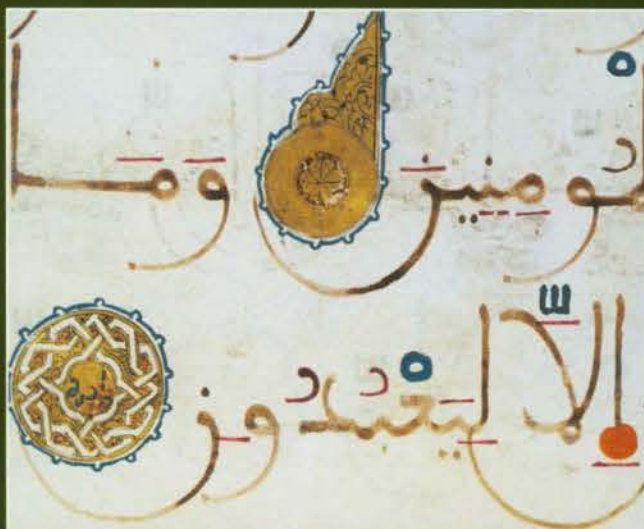 مُومِنِينَ وَمَا
اِلَّا لِيَعْبُدُونِ